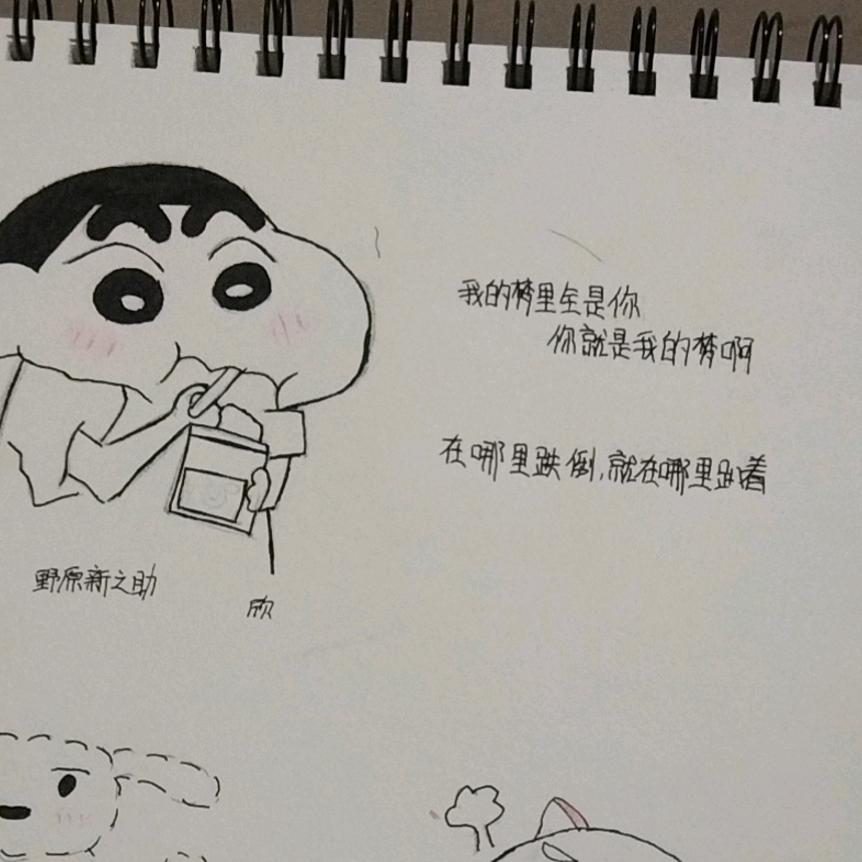 我的梦里全是你
你就是我的梦啊
在哪里跌倒,就在哪里趴着
野原新之助
欣